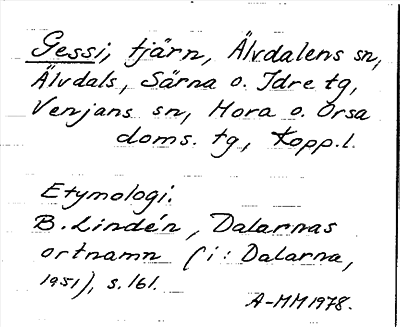 Gessi, tjärn, Älvdalens sn,
Älvdals, Särna o. Idre tg,
Venjans sn, Mora o. Orsa
doms. tg, Kopp.l.
Etymologi.
B. Lindén, Dalarnas
ortnamn (i: Dalarna,
1951), s. 161.
A-MM 1978.